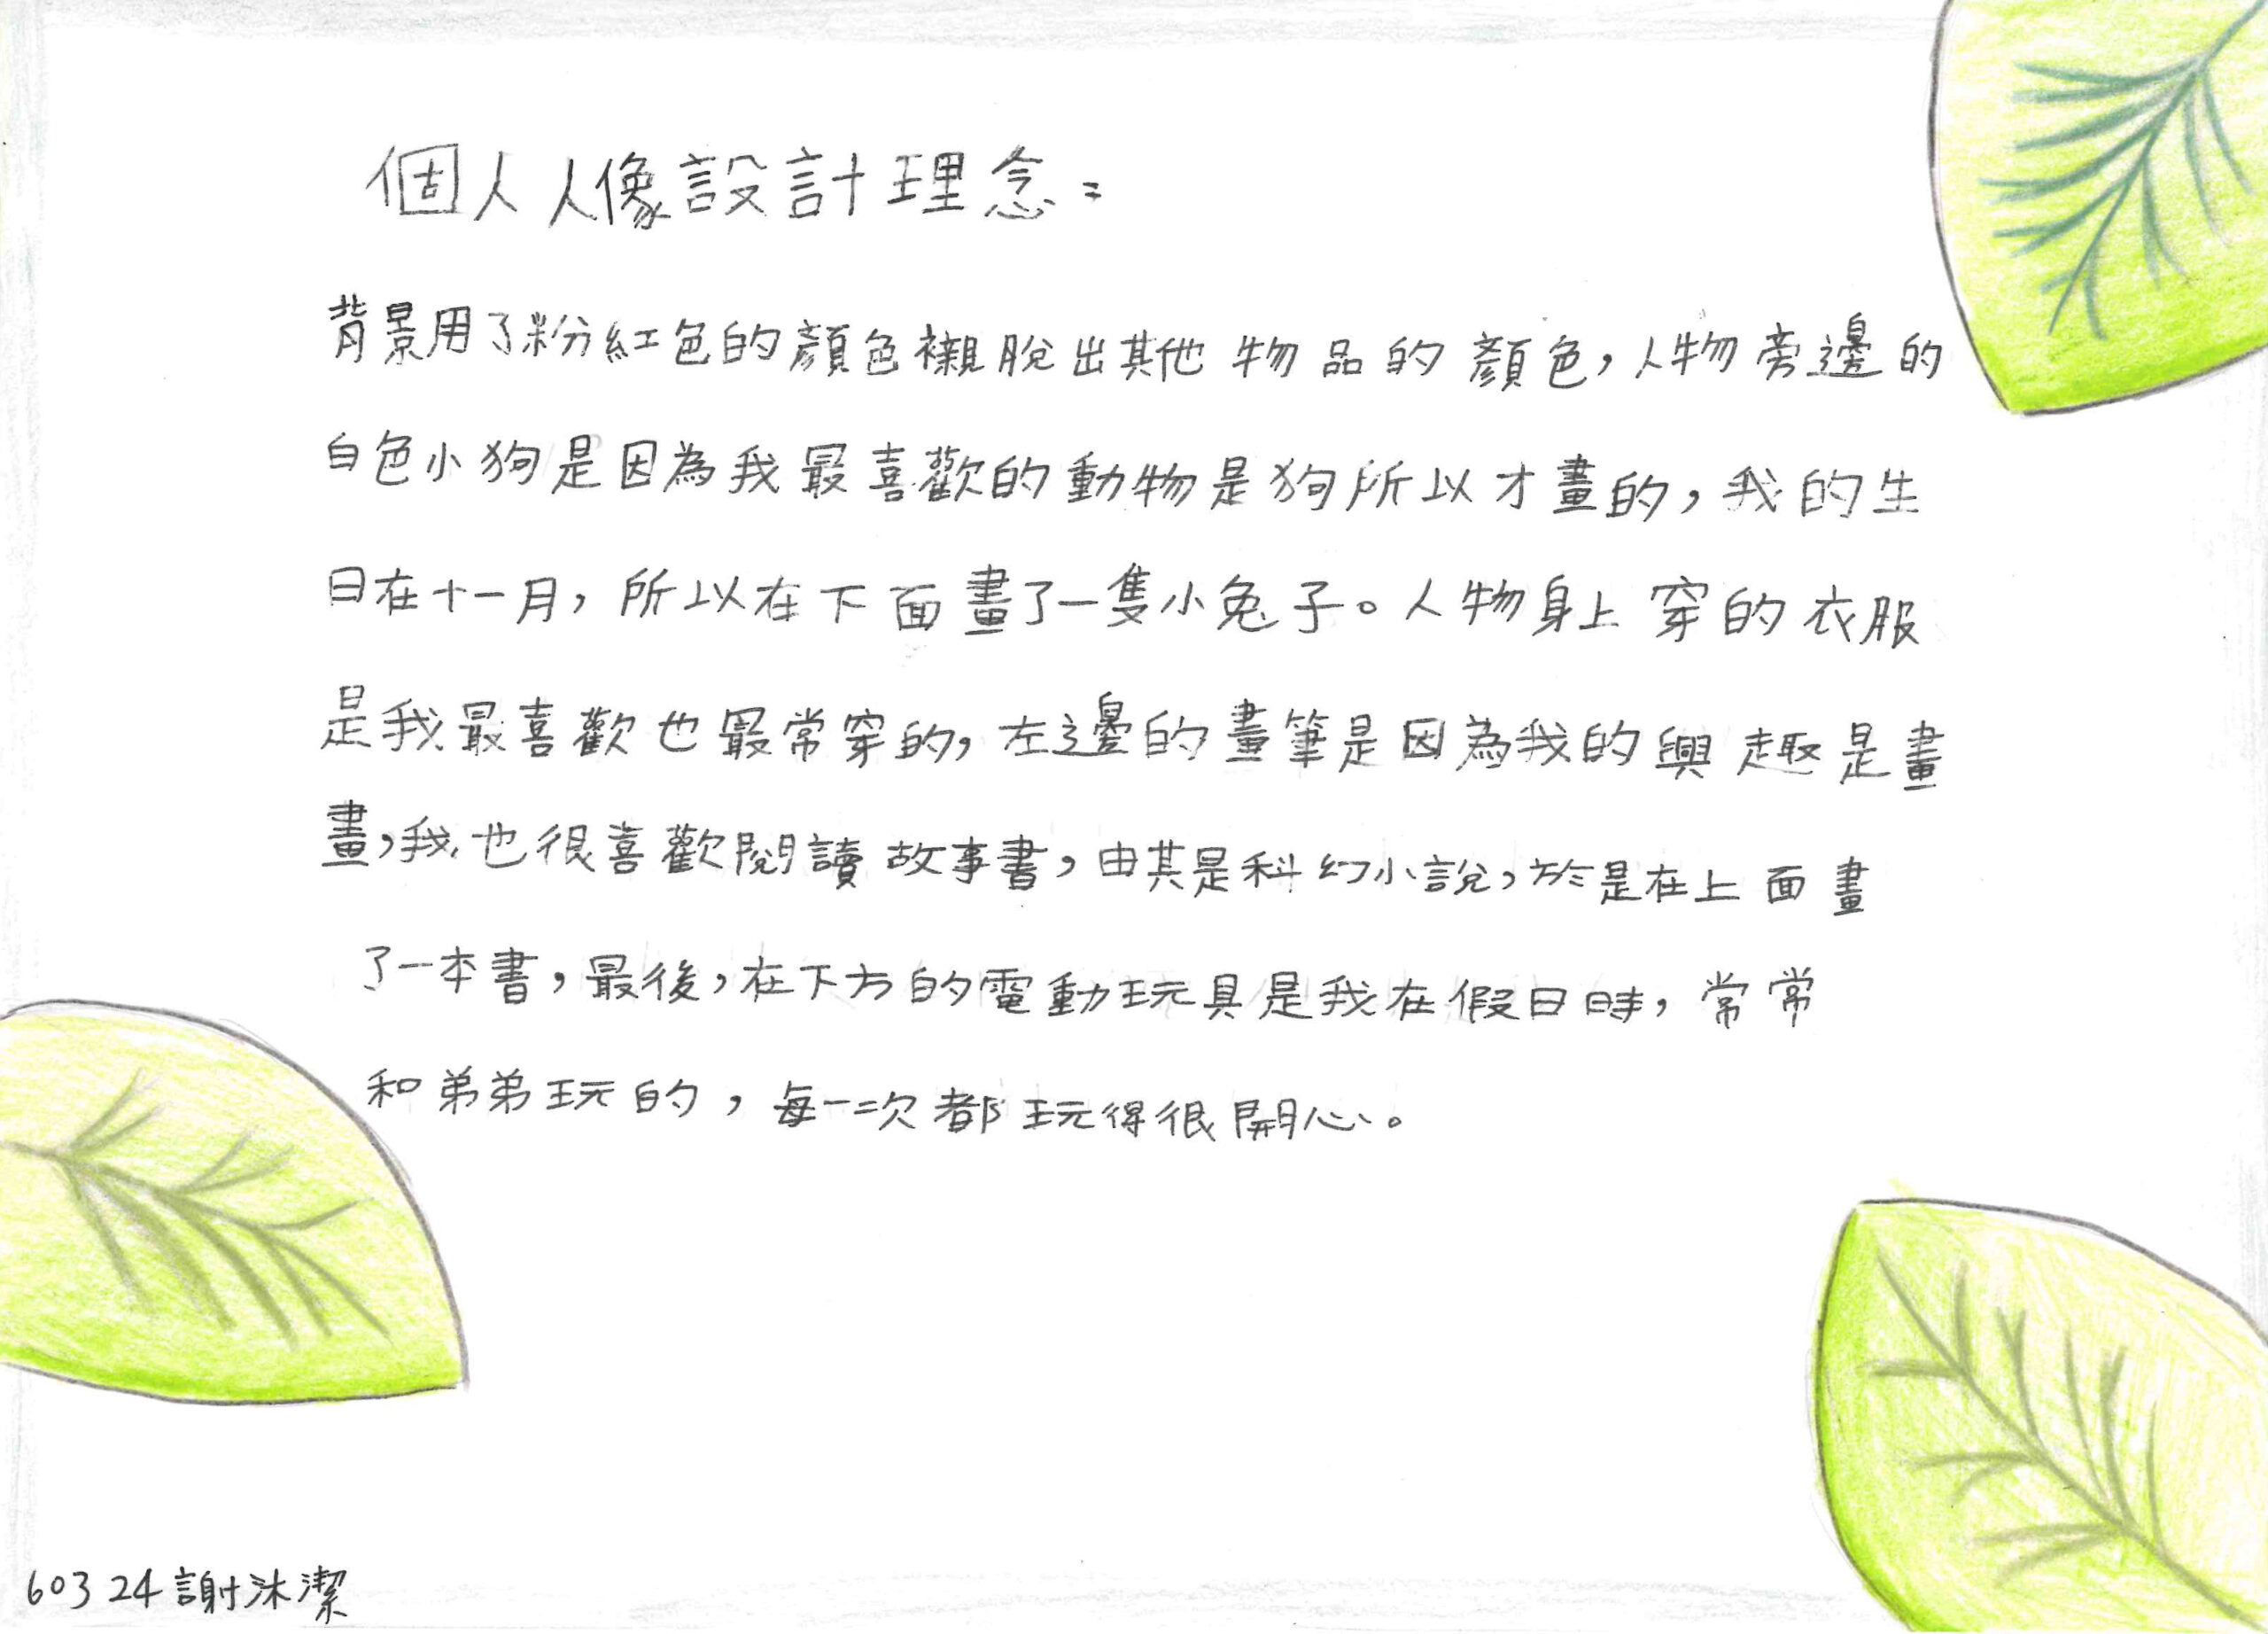 個人人像設計理念：
背景用了粉紅色的顏色襯脫出其他物品的顏色，人物旁邊的
白色小狗是因為我最喜歡的動物是狗所以才畫的，我的生
日在十一月，所以在下面畫了一隻小兔子。人物身上穿的衣服
是我最喜歡也最常穿的，左邊的畫筆是因為我的興趣是畫
畫，我也很喜歡閱讀故事書，由其是科幻小說，於是在上面畫
了一本書，最後，在下方的電動玩具是我在假日時，常常
和弟弟玩的，每一次都玩得很開心。
603 24 謝沐潔